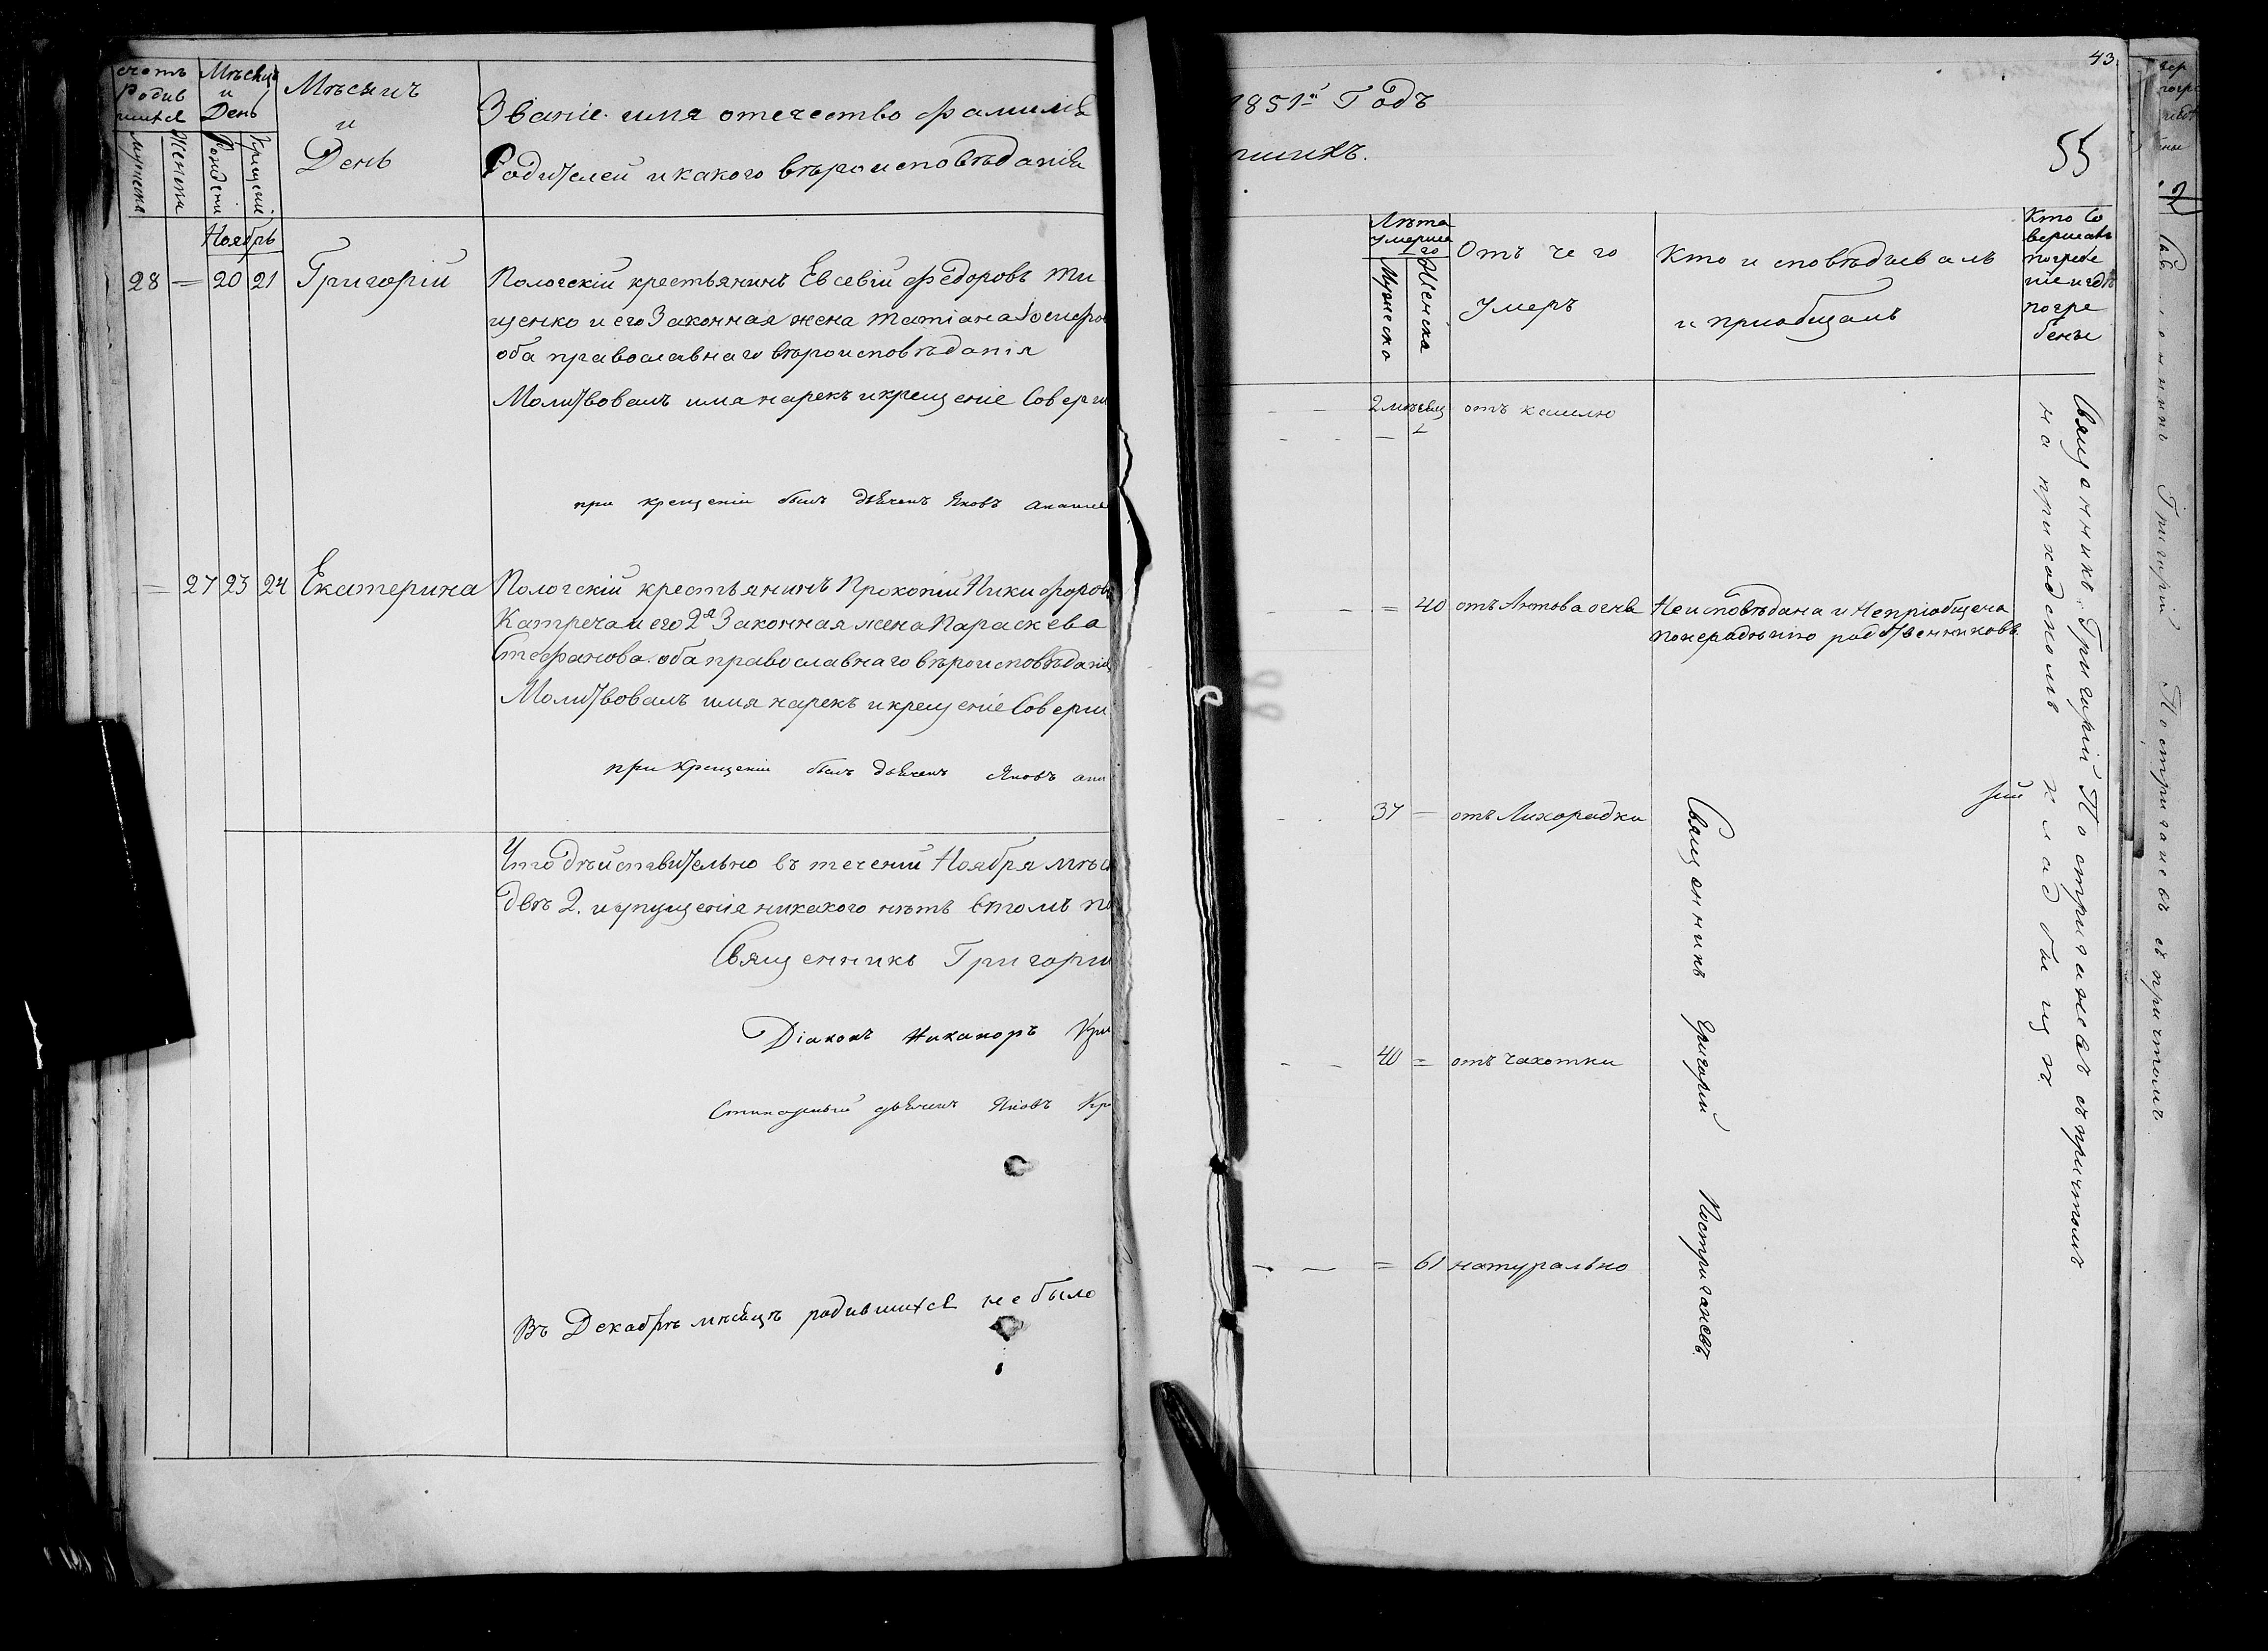 счетъ
Родив
шихся
Мѣсяць
и
День
Мѣсяцъ
и
День
Званіе имя отечество фамилія
Родителей и какого вѣроисповѣданія
мужеска
Женска
Рождени
Крещеніе
Ноябрь
28 — 20 21 Григорій
Пологскій крестьянинъ Евсевій Федоровъ Ти
щенко и его Законная жена Татіана Іосифов
оба православнаго вѣроисповѣданія
Молитвовалъ имя нарекъ и крещеніе Соверш
при крещеніи былъ дьячекъ Яковъ
= 27 23 24 Екатерина
Пологскій крестьянинъ Прокопій Никифоровъ
Катреча и его 2я Законная жена Параскева
Стефанова оба православнаго вѣроисповѣданія
Молитвовалъ имя нарекъ и крещеніе Соверш
при Крещеніи былъ дьячекъ Яковъ
Что дѣйствительно въ теченіи Ноября мѣся
двѣ 2. и упущенія никакого нѣтъ втомъ по
Священникъ Григорій
Діаконъ Никаноръ Кри
Стихарный дьячекъ Яковъ Кр
Въ Декабрѣ мѣсяцѣ родившихся не было
43.
1851й Годъ
шихъ.
55
Лѣта
умерша
го
Мужеско
Женска
Отъ чего
умеръ
Кто исповѣдывалъ
и приобщалъ
Кто Со
вершалъ
погребе
ніе и гдѣ
погре
бены
— — 2 мѣсяц отъ кашлю
— — = 40 отъ Антова огня Неисповѣдана и Непріобщена
понерадѣнію родственниковъ.
37 = отъ Лихорадки
— — 40 = отъ чахотки
— — = 61 натурально
Священникъ Григорій Постриганевъ
Священникъ Григорій Постриганевъ съ причтомъ
на приходскомъ кладбищѣ
Григорій Постриганевъ съ причтомъ